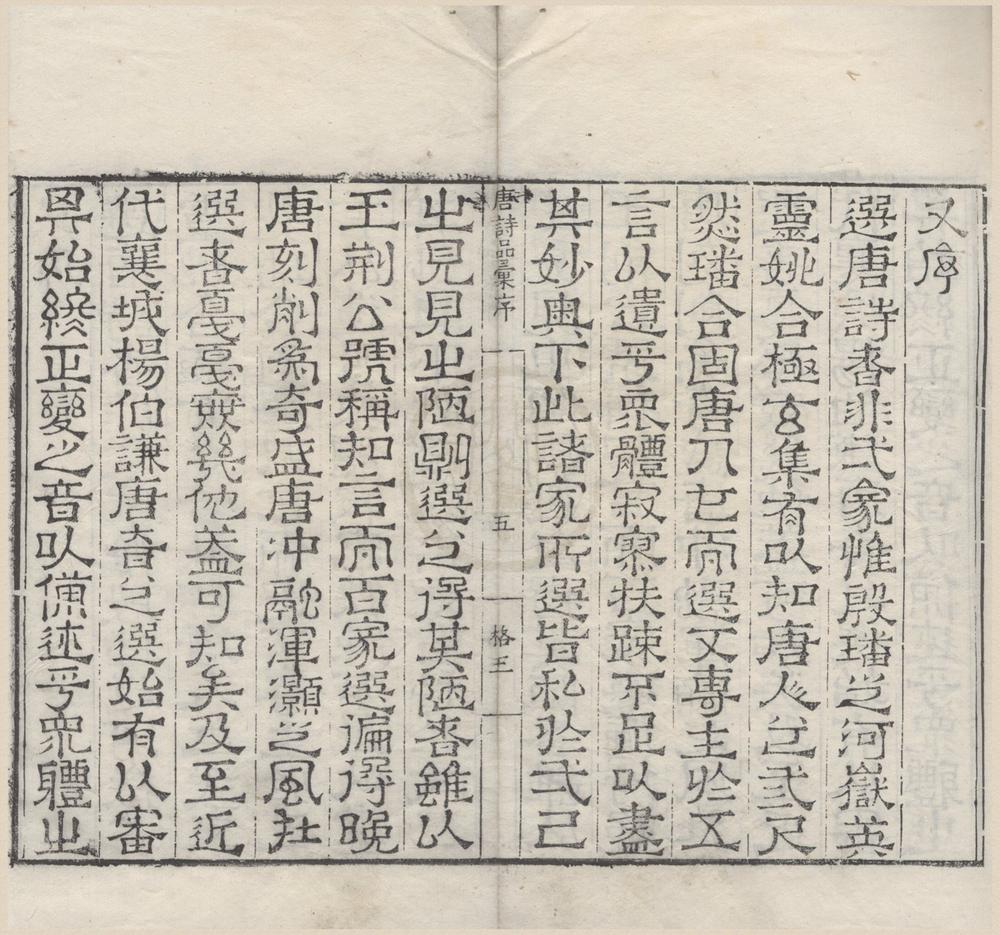 又序
選唐詩者非弌家惟殷璠之河嶽英
靈姚合極玄集有以知唐人之弎尺
然璠合固唐人也而選又專主於五
言以遺乎眾體寂寥扶疎不足以盡
其妙奧下此諸家所選皆私於弌己
唐詩品彙序 五 格王
之見見之陋則選之得其陋者雖以
王荊公號稱知言而百家選徧得晚
唐刻削為奇盛唐沖融渾灝之風在
選者戛戛寡幾他盖可知矣及至近
代襄城楊伯謙唐音之選始有以審
其始終正變之音以備述乎眾體之